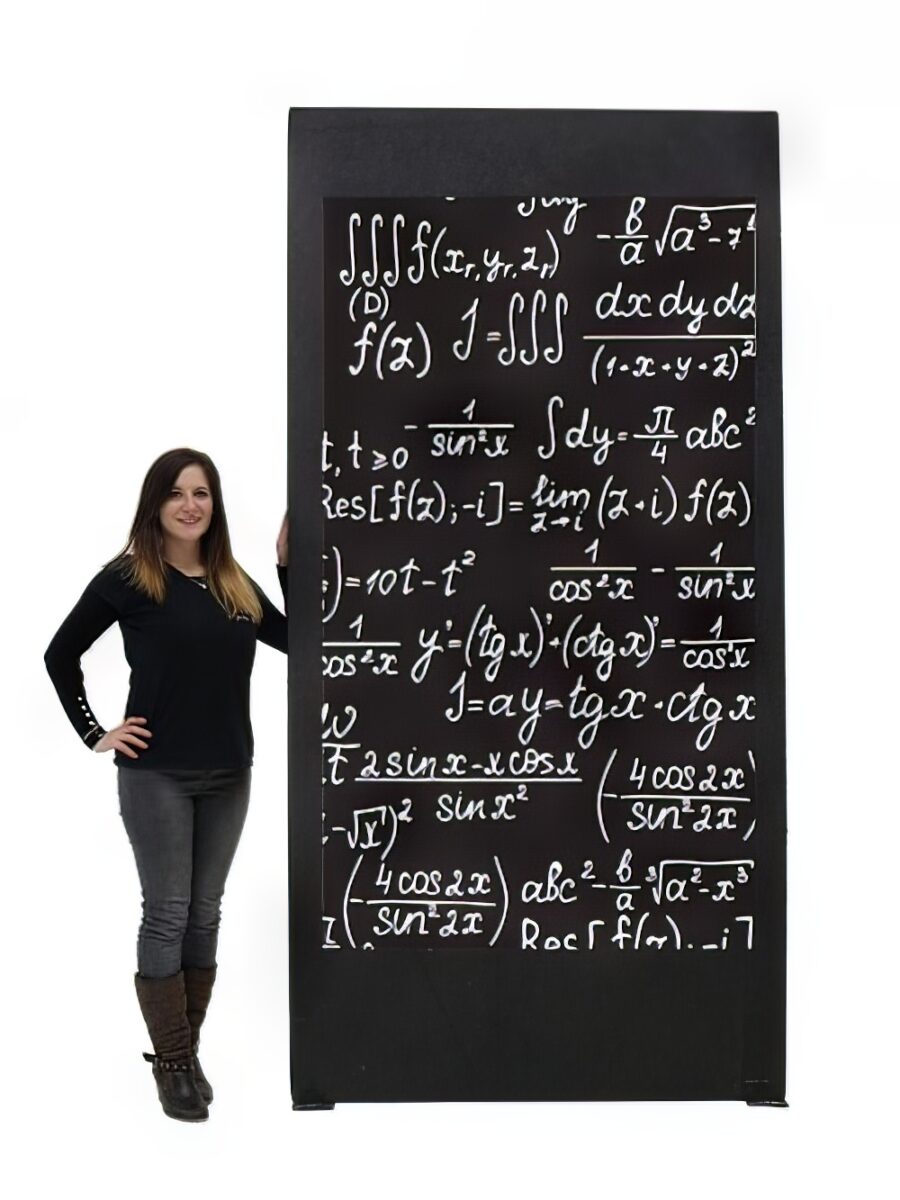 ∭f(xᵣ,yᵣ,zᵣ) -в/a √a³-7
(D)
f(z) J=∭ dx dy dz/(1+x+y+z)²
t, t⩾0 -1/sin²x ∫dy=π/4 авс²
Res[f(z);-i]=lim z→i (z+i) f(z)
)=10t-t² 1/cos²x - 1/sin²x
1/cos²x y'=(tg x)'+(ctg x)'=1/cos'x
J=ay=tgx·ctg x
t 2sinx-xcosx/sinx² (-4cos2x/sin²2x)
-√x)²
(-4cos2x/sin²2x) авс²-в/a ∛a²-x³
Res[f(z);-i]